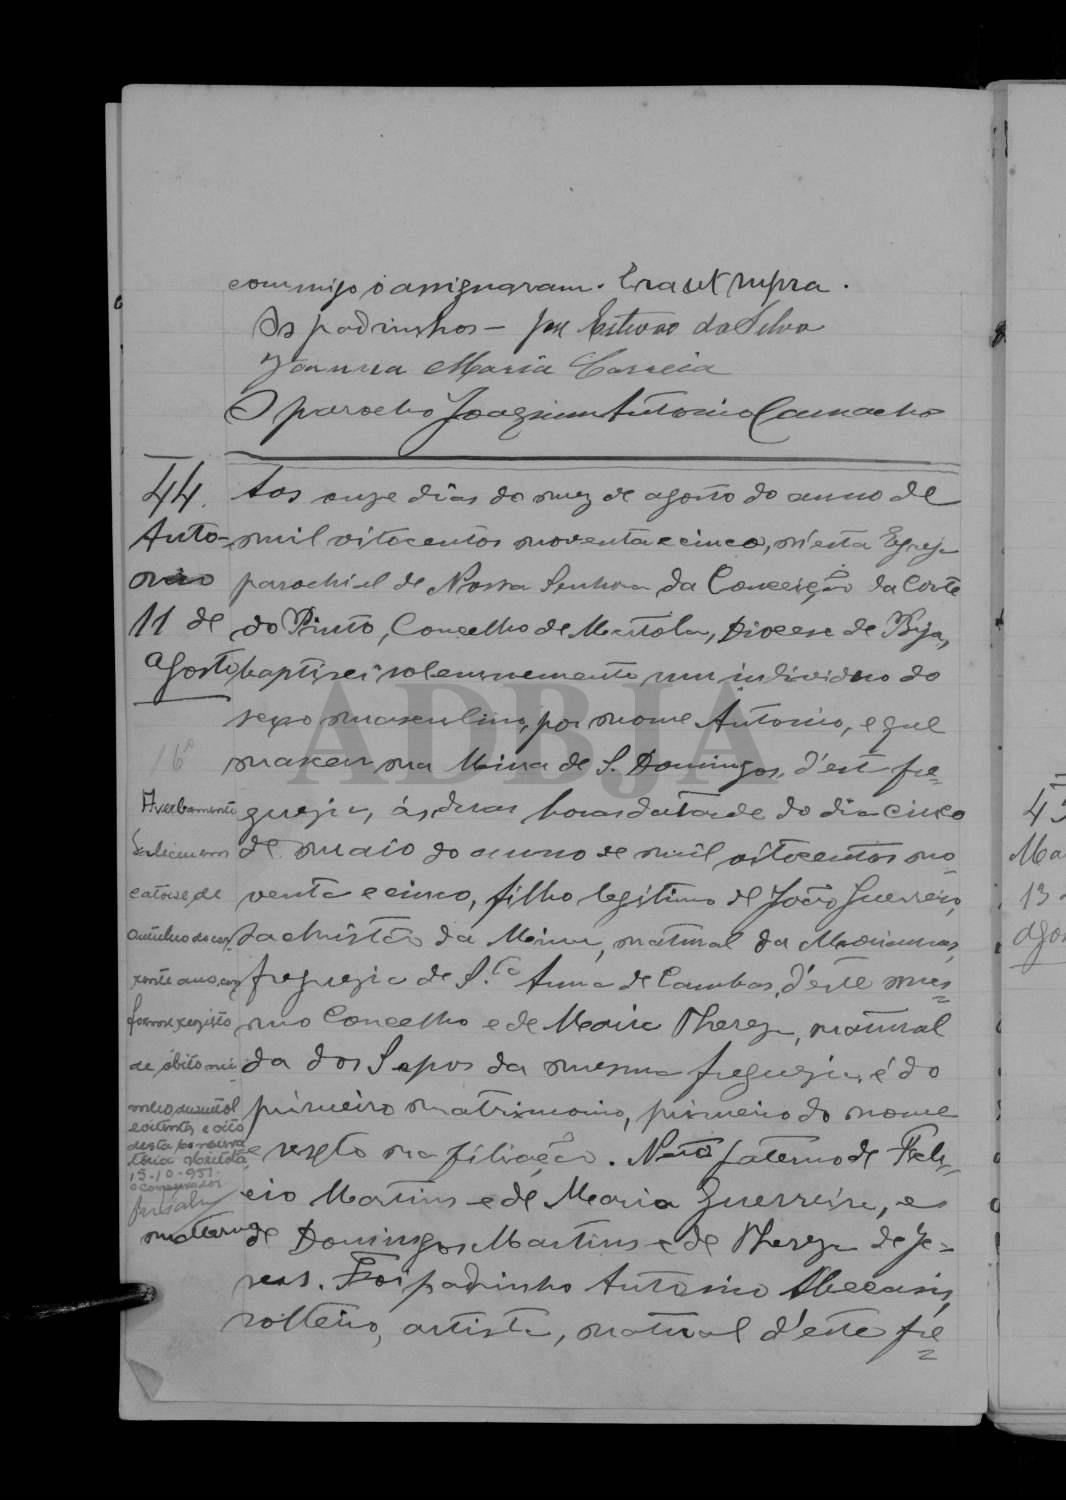 commigo o assignaram. Era ut supra.
Os padrinhos - José Estevão da Silva
Joanna Maria Correia
O parocho Joaquim Antonio Camacho
44.
Antonio
11 de
agosto
Aos onze dias do mez de agosto do anno de
mil oitocentos noventa e cinco, n'esta Egreja
parochial de Nossa Senhora da Conceição da Corte
do Pinto, Concelho de Mertola, Diocese de Beja,
baptisei solemnemente um individuo do
sexo masculino, por nome Antonio, e que
nasceu na Mina de S. Domingos, d'esta fre=
guezia, ás duas horas da tarde do dia cinco
de maio do anno de mil oitocentos no
venta e cinco, filho legitimo de João Guerreiro,
sachristão da Mina, natural da
freguezia de S.ta Anna de Cambas, d'este mes=
mo Concelho e de Maria Thereza, natural
da dos Sapos da mesma freguezia, é do
primeiro matrimonio, primeiro do nome
e sexto na filiação. Neto paterno de
Martins e de Maria Guerreira, e
materno de Domingos Martins e de Thereza de Je=
sus. Foi padrinho Antonio
solteiro, artista, natural d'esta fre
=
16º
Averbamento
Faleceu em
catorze de
outubro do cor-
rente ano, con
forme registo
de óbito nú-
mero duzentos
e oito
desta conserva
tória Mertola
15-10-957.
O conservador
ADBJA
45
Ma
13
agos